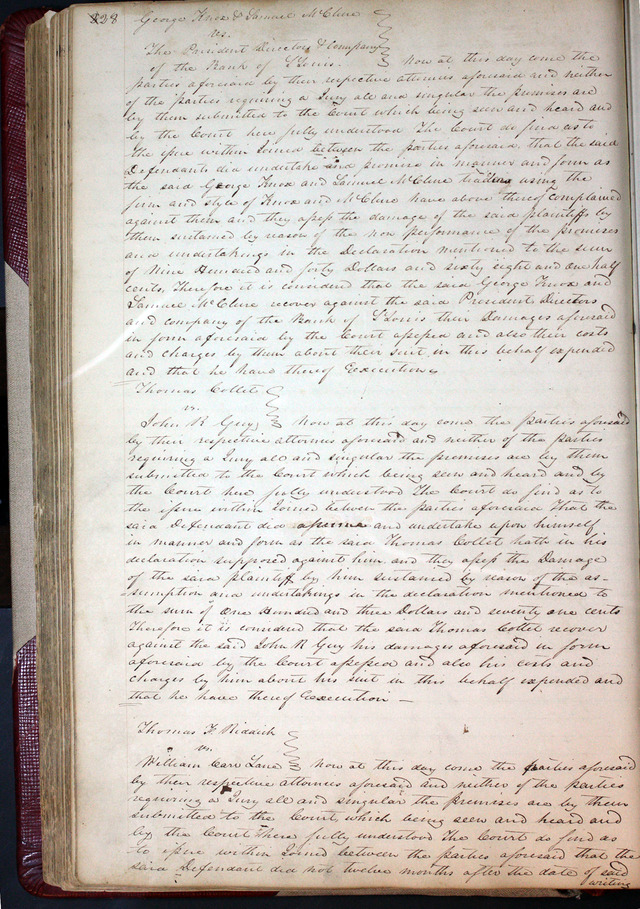 328
George Knox & Samuel McClure
vs.
The President Directors & Company
of the Bank of St Louis. Now at this day come the
parties aforesaid by their respective attornies aforesaid and neither
of the parties requiring a Jury all and singular the premises are
by them submitted to the Court which being seen and heard and
by the Court here fully understood The Court do find as to
the issue within Joined between the parties aforesaid, that the said
Defendants did undertake and promise in manner and form as
the said George Knox and Samuel McClure trading using the
firm and style of Knox and McClure have above thereof complained
against them and they assess the damage of the said plaintiffs by
them sustained by reason of the non performance of the promises
and undertakings in the Declaration mentioned to the sum
of Nine Hundred and forty Dollars and sixty eight and one half
cents, Therefore it is considered that the said George Knox and
Samuel McClure recover against the said President Directors
and company of the Bank of St Louis their Damages aforesaid
in form aforesaid by the Court assessed and also their costs
and charges by them about their suit in this behalf expended
and that he have thereof Execution
Thomas Collet
vs.
John R Guy, Now at this day come the parties aforesaid
by their respective attornies aforesaid and neither of the parties
requiring a Jury all and singular the premises are by them
submitted to the Court which being seen and heard and by
the Court here fully understood The Court do find as to
the issue within Joined between the parties aforesaid That the
said Defendant did assume and undertake upon himself
in manner and form as the said Thomas Collet hath in his
declaration supposed against him, and they assess the Damage
of the said plaintiff by him sustained by reason of the as-
sumption and undertakings in the declaration mentioned to
the sum of One Hundred and three Dollars and seventy one cents
Therefore it is considered that the said Thomas Collet recover
against the said John R Guy his damages aforesaid in form
aforesaid by the Court assessed and also his costs and
charges by him about his suit in this behalf expended and
that he have thereof Execution —
Thomas F Riddick
vs.
William Carr Lane Now at this day come the parties aforesaid
by their respective attornies aforesaid and neither of the parties
requiring a Jury all and singular the premises are by them
submitted to the Court, which being seen and heard and
by the Court here fully understood The Court do find as
to issue within Joined between the parties aforesaid that the
said Defendant did not twelve months after the date of said
writing